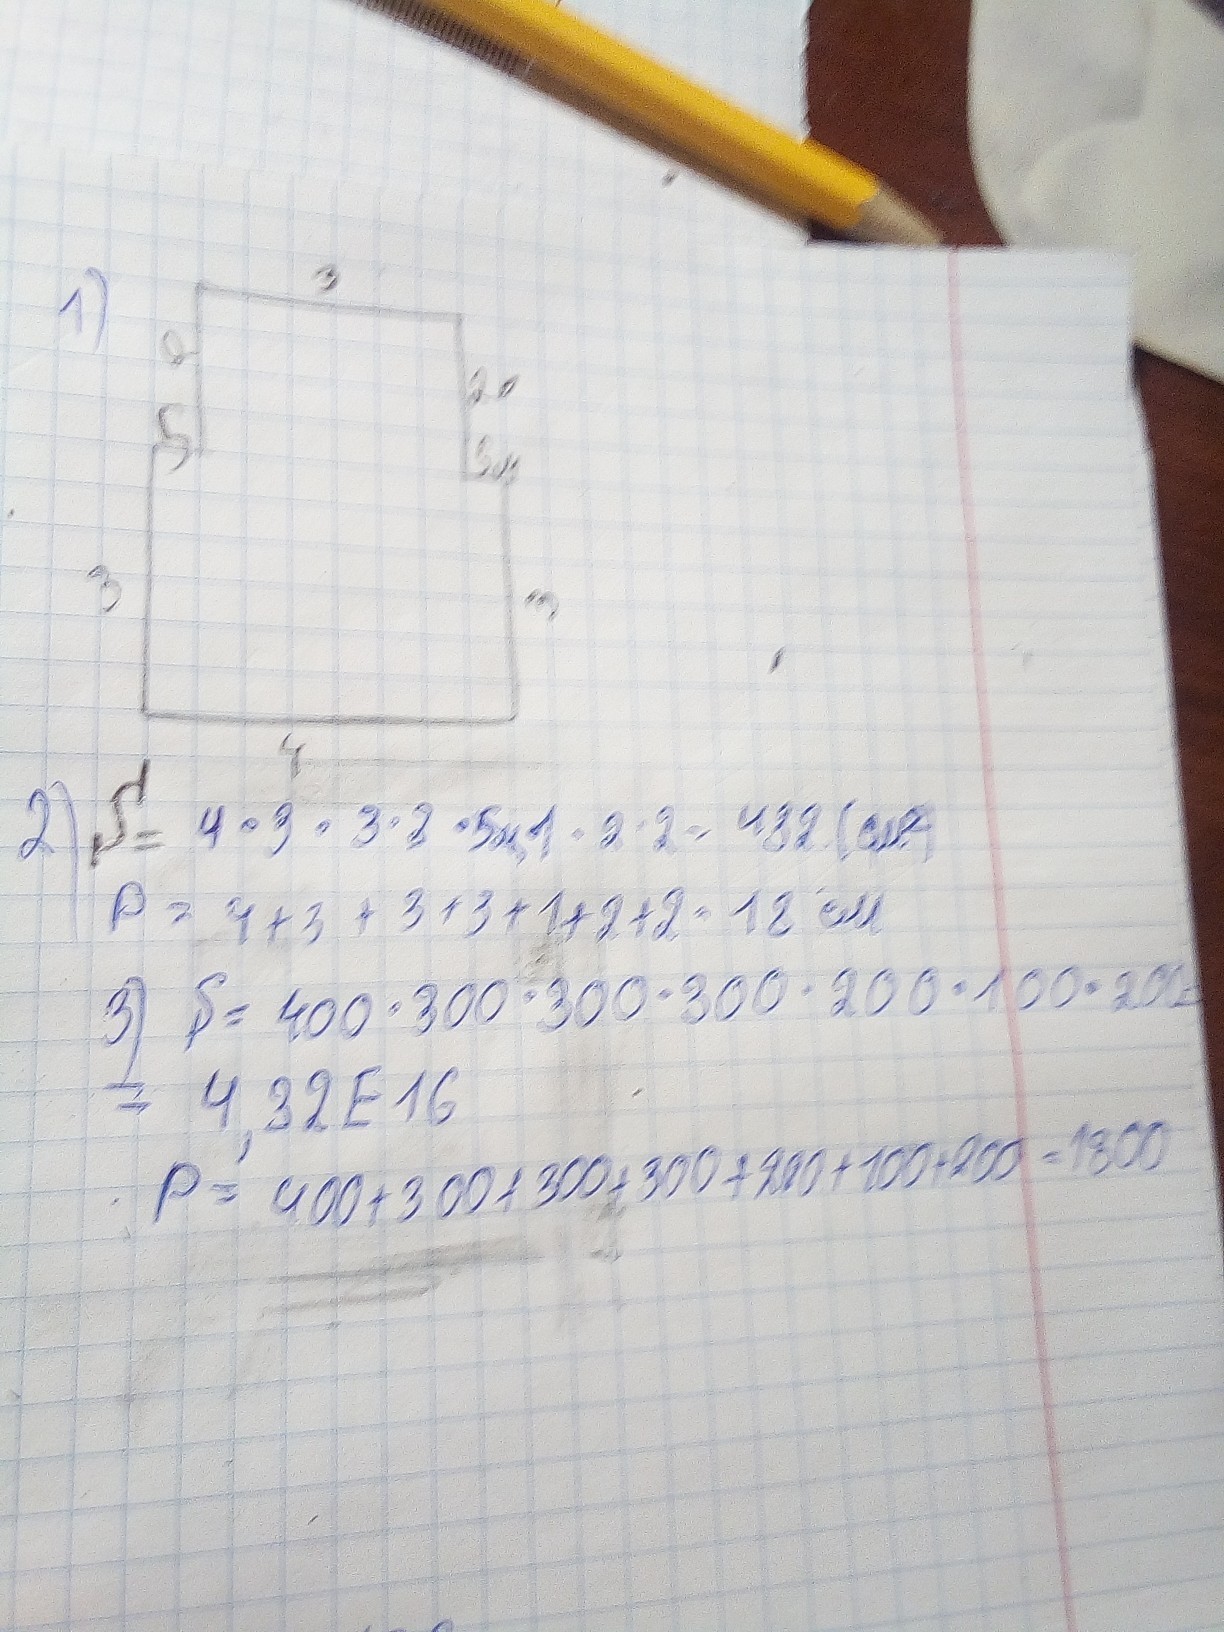 1)
3
2
2
5
3
3
4
2) S =
4 · 3 · 3 · 3 · 1 · 2 · 2 = 432 (см²)
P = 4 + 3 + 3 + 3 + 1 + 2 + 2 = 18 см
3) S = 400 · 300 · 300 · 300 · 200 · 100 · 200 =
= 4,32E16
P = 400 + 300 + 300 + 300 + 200 + 100 + 200 = 1800